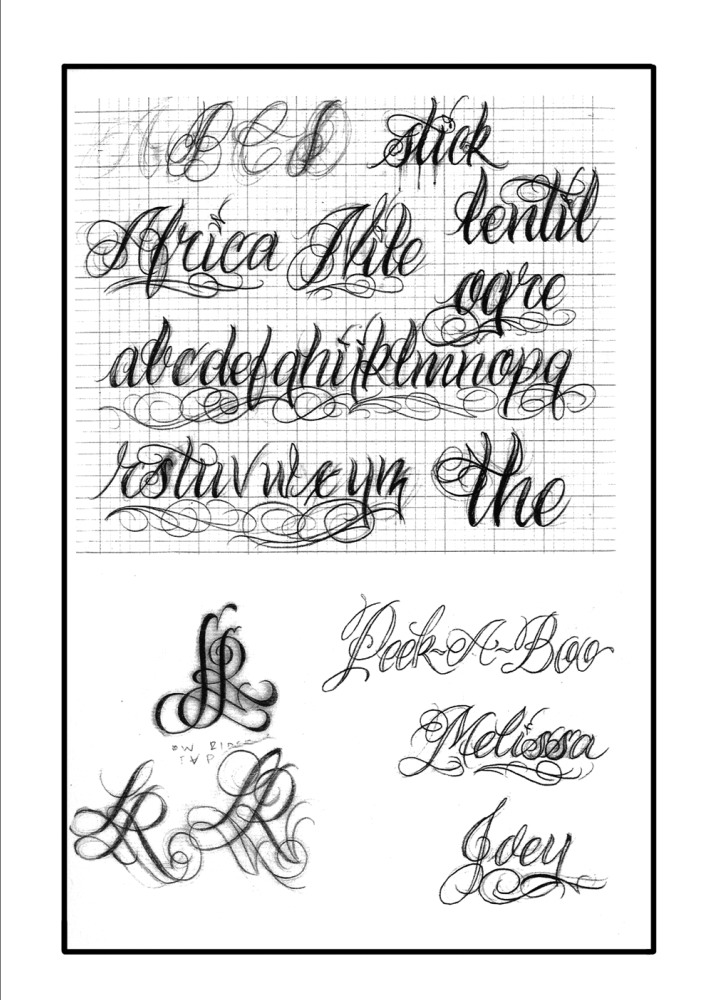 A B C D stick
lentil
Africa Nile
ogre
abcdefghijklmnopq
rstuvwxyz the
Peek-A-Boo
LR
Melissa
LR LR
Joey